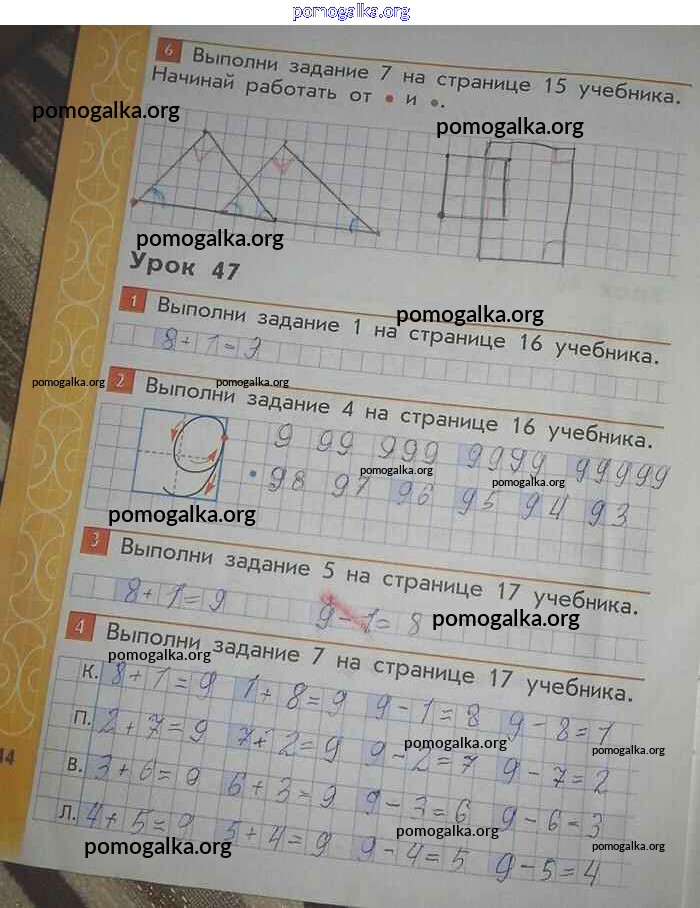 pomogalka.org
6 Выполни задание 7 на странице 15 учебника.
Начинай работать от • и •.
pomogalka.org
pomogalka.org
pomogalka.org
Урок 47
pomogalka.org
1 Выполни задание 1 на странице 16 учебника.
8 + 1 = 9
pomogalka.org pomogalka.org
2 Выполни задание 4 на странице 16 учебника.
9 99 999 9999 99999
pomogalka.org
98 97 96 95 94 93
pomogalka.org
pomogalka.org
3 Выполни задание 5 на странице 17 учебника.
8 + 1 = 9 9 - 1 = 8
pomogalka.org
4 Выполни задание 7 на странице 17 учебника.
pomogalka.org
К. 8 + 1 = 9 1 + 8 = 9 9 - 1 = 8 9 - 8 = 1
П. 2 + 7 = 9 7 + 2 = 9 9 - 2 = 7 9 - 7 = 2
pomogalka.org pomogalka.org
14
В. 3 + 6 = 9 6 + 3 = 9 9 - 3 = 6 9 - 6 = 3
Л. 4 + 5 = 9 5 + 4 = 9 9 - 4 = 5 9 - 5 = 4
pomogalka.org pomogalka.org pomogalka.org